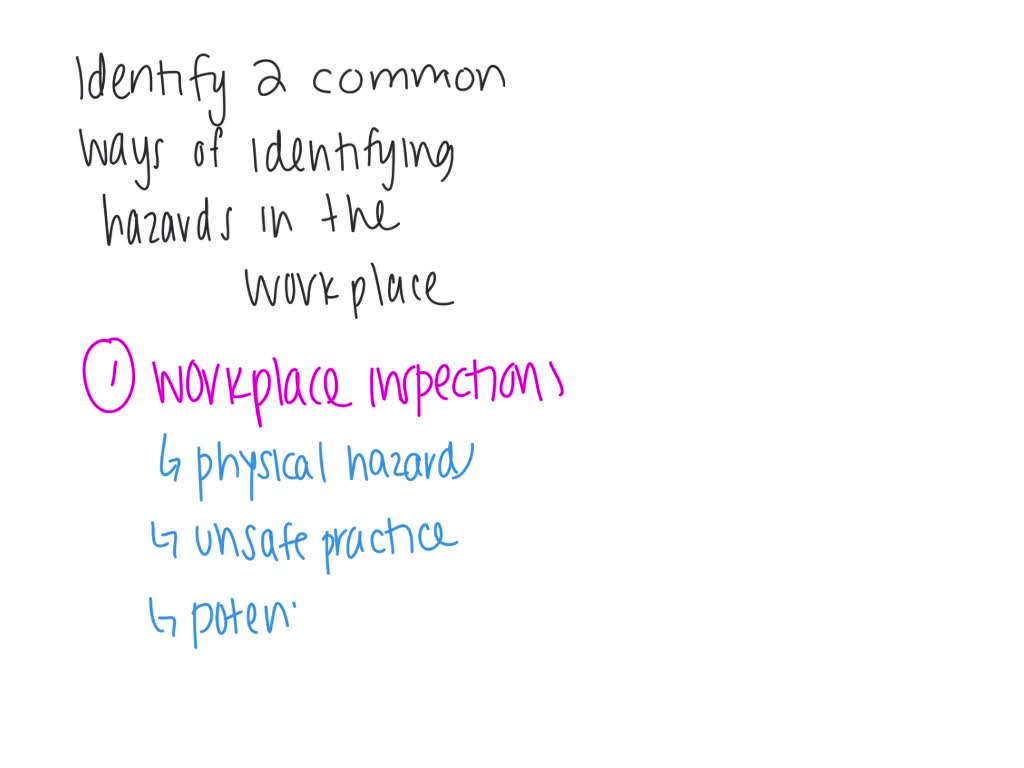 Identify 2 common
ways of identifying
hazards in the
workplace
1 workplace inspections
↳ physical hazards
↳ unsafe practice
↳ poten